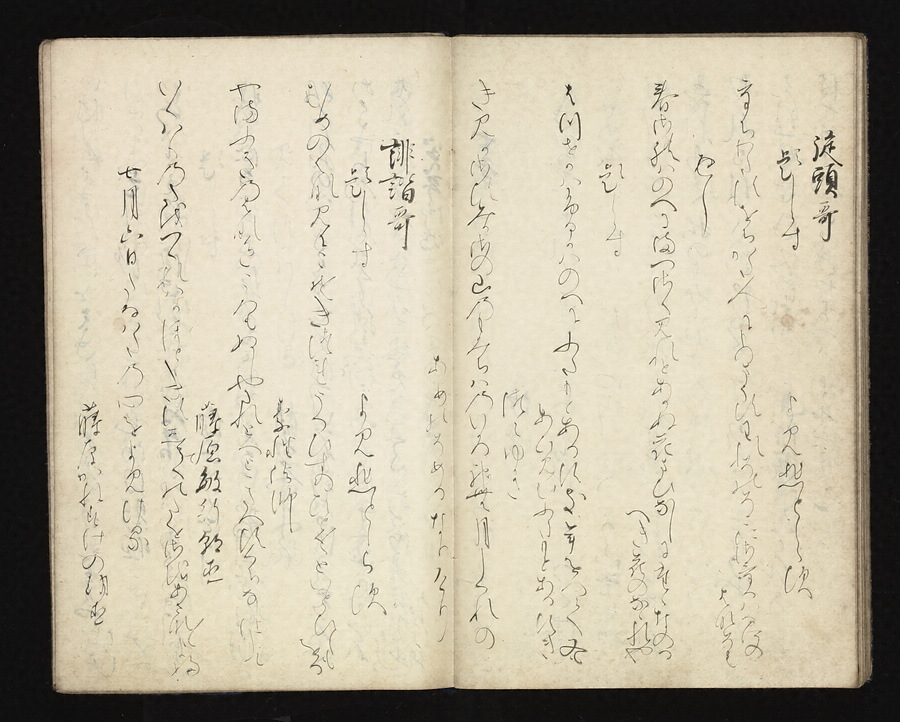 旋頭哥
題しらす
よみ人しらす
うちわたすをちかた人にものまうすわれそのそこにしろくさけるは
なにの花そも
かへし
春されはのへにまつさくみれとあかぬ花まひなしにたゝなのる
へき花のなゝれや
題しらす
はつせかはふるかはのへにふたもとあるすき年をへて又も
あひみむふたもとあるすき
つらゆき
きみかさすみかさの山のもみちはのいろ神な月しくれの
あめのそめるなりけり
誹諧哥
題しらす
よみ人しらす
むめの花見にこそきつれうくひすのひとく〳〵といとひしもをる
素性法師
やまふきの花いろころもぬしやたれとへとこたへすくちなしにして
藤原敏行朝臣
いくはくのたをつくれはかほとゝきすしてのたをさをあさな〳〵よふ
七月六日たなはたの心をよみける
藤原かねすけの朝臣